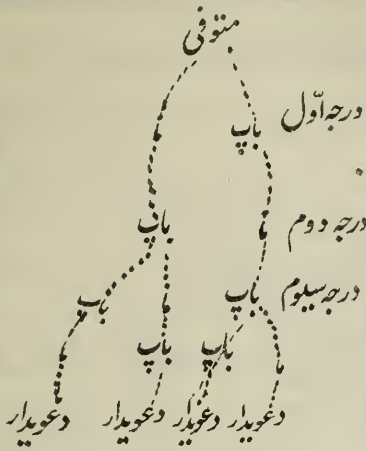 متوفی
درجہ اوّل باپ ما
درجہ دوم ما باپ
درجہ سیوم باپ ما باپ
ما باپ باپ ما
دعویدار دعویدار دعویدار دعویدار